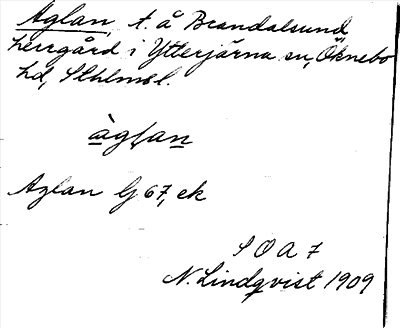 Aglan, t. å Brandalsund,
herrgård i Ytterjärna sn, Öknebo
hd, Sthlmsl.
àgḷan
Aglan G 67, ek
S O A 7
N. Lindqvist 1909